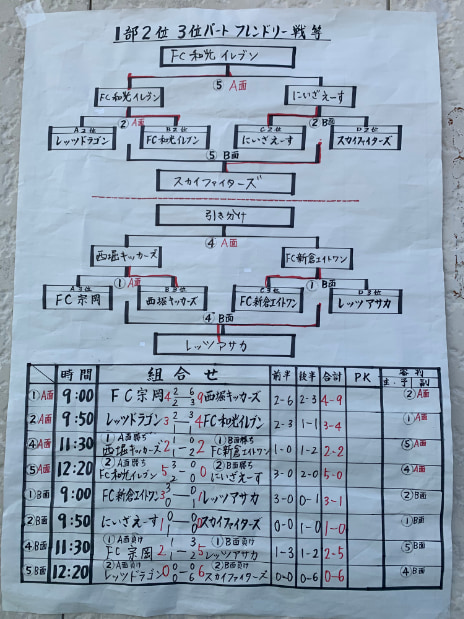 1部2位 3位パート フレンドリー戦等
FC和光イレブン
⑤ A面
FC和光イレブン にいざえーす
② A面 ② B面
A2位 B2位 C2位 D2位
レッツドラゴン FC和光イレブン にいざえーす スカイファイターズ
⑤ B面
スカイファイターズ
引き分け
④ A面
西堀キッカーズ FC新倉エイトワン
① A面 ① B面
A3位 B3位 C3位 D3位
FC宗岡 西堀キッカーズ FC新倉エイトワン レッツアサカ
④ B面
レッツアサカ
時間 組合せ 前半 後半 合計 PK 審判
主・予 副
①A面 9:00 FC宗岡 4 2 6 2 3 9 西堀キッカーズ 2-6 2-3 4-9 ②A面
②A面 9:50 レッツドラゴン 3 2 3 1 1 4 FC和光イレブン 2-3 1-1 3-4 ①A面
④A面 11:30 ①A面勝ち 西堀キッカーズ 2 1 0 1 2 2 ①B面勝ち FC新倉エイトワン 1-0 1-2 2-2 ⑤A面
⑤A面 12:20 ②A面勝ち FC和光イレブン 5 3 0 2 0 0 ②B面勝ち にいざえーす 3-0 2-0 5-0 ④A面
①B面 9:00 FC新倉エイトワン 3 3 0 0 1 1 レッツアサカ 3-0 0-1 3-1 ②B面
②B面 9:50 にいざえーす 1 0 0 1 0 0 スカイファイターズ 0-0 1-0 1-0 ①B面
④B面 11:30 ①A面負け FC宗岡 2 1 3 1 2 5 ①B面負け レッツアサカ 1-3 1-2 2-5 ⑤B面
⑤B面 12:20 ②A面負け レッツドラゴン 0 0 0 0 6 6 ②B面負け スカイファイターズ 0-0 0-6 0-6 ④B面